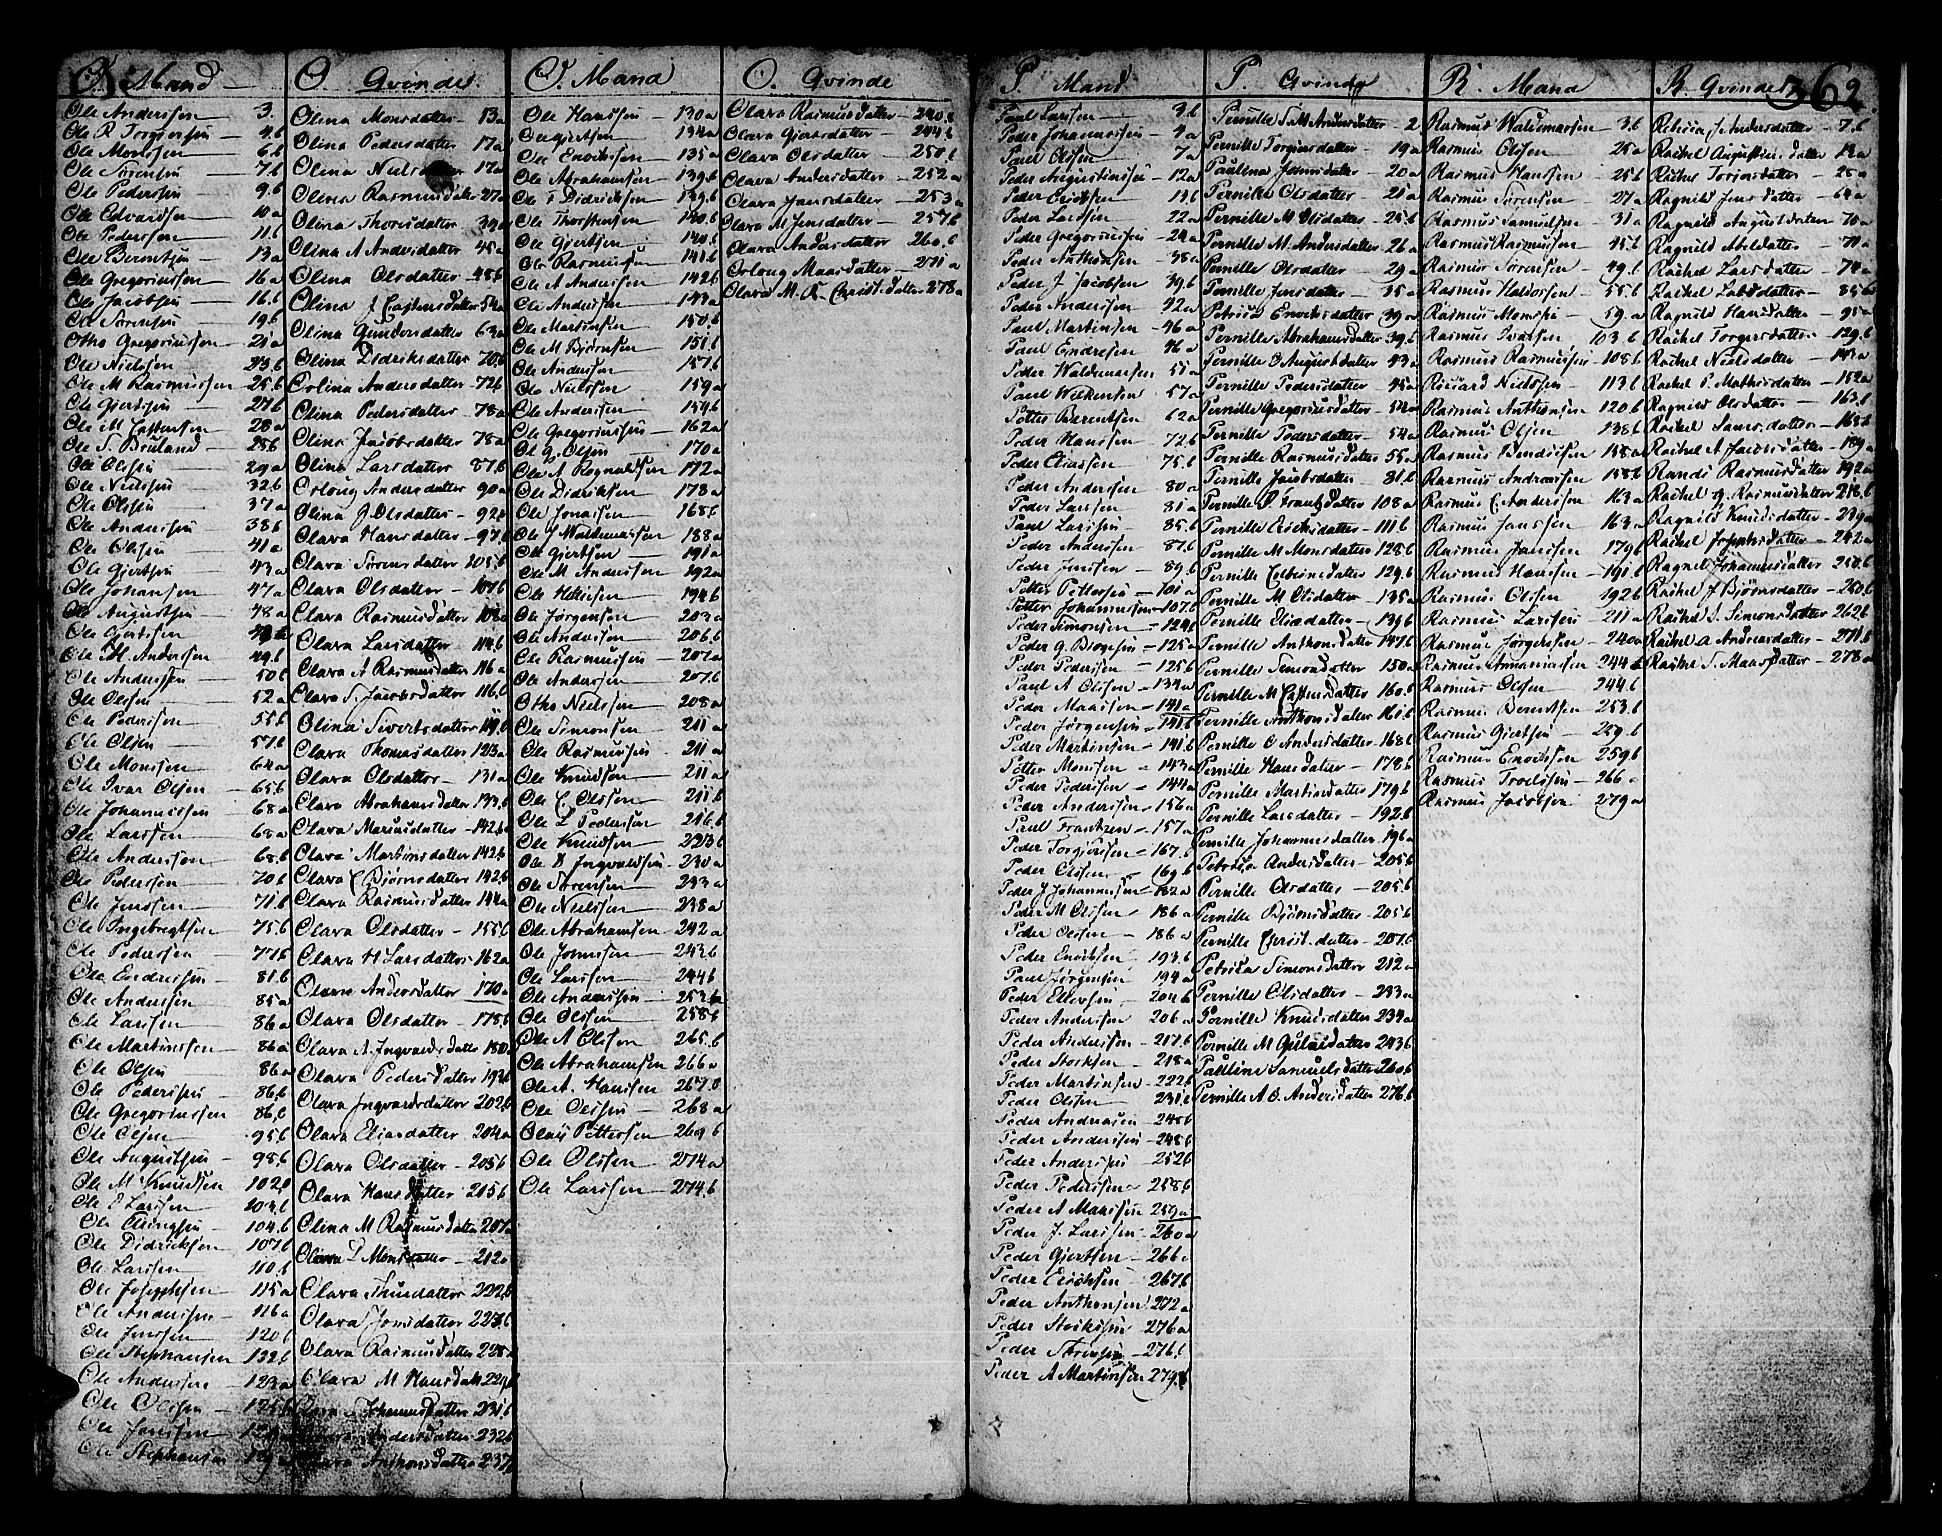 O. Mand
Ole Anderssen 3.
Ole R Torgierssen 4.b
Ole Monssen 6.b
Ole Sørenssen 7.b
Ole Pederssen 9.b
Ole Edvardsen 10 a
Ole Pederssen 11.b
Ole Berentsen 13 a
Ole Gregoriussen 16 a
Ole Jacobsen 16.b
Ole Sørensen 19 b
Otto Gregoriussen 21 a
Ole Nielssen 23.b
Ole M Rasmussen 25.b
Ole Giertsen 27 b
Ole M Castensen 28 a
Ole S. Bruland 28 b
Ole Olssen 29 a
Ole Nielssen 32.b
Ole Olssen 37 a
Ole Anderssen 38 b
Ole Olssen 41 a
Ole Giertsen 43 a
Ole Johansen 47 a
Ole Augustsen 48 a
Ole Giertssen
Ole M. Anderssen 49.b
Ole Anderssen 50 b
Ole Olssen 52 a
Ole Pederssen 55 b
Ole Olsen 57 b
Ole Monssen 64 a
Ole Ivar Olsen 65 b
Ole Johannessen 68 a
Ole Larssen 68 a
Ole Anderssen 68.b
Ole Pederssen 70 b
Ole Jenssen 71 b
Ole Ingebregtsen 75.b
Ole Pederssen 77 b
Ole Endressen 81.b
Ole Anderssen 85 a
Ole Larssen 86 a
Ole Martinssen 86 a
Ole Olsen 86 a
Ole Pederssen 86.b
Ole Gregoriussen 86.b
Ole Olsen 95 b
Ole Augustsen 98.b
Ole M Knudsen 102.b
Ole Larssen 103.b
Ole 104.b
Ole Didricksen 107 b
Ole Larssen 110.b
Ole Josephsen 115 a
Ole Anderssen 116 a
Ole Jenssen 120 b
Ole Stephansen 132.b
Ole Anderssen 123 a
Ole Olssen 125 b
Ole Janssen
Ole Stephansen
O. Qvinder
Olina Monsdatter 13 a
Olina Pedersdatter 17 a
Olina Nielsdatter 17 a
Olina Rasmusdatter 27 a
Olina Thoresdatter 39 a
Olina A Andersdatter 45 a
Olina Olsdatter 48 b
Olina J Castensdatter 54 a
Olina Gundersdatter 63 a
Olina Didriksdatter 70.b
Orlina Andersdatter 72 b
Olina Pedersdatter 78 a
Olina Jacobsdatter 78 a
Olina Larsdatter 87.b
Orloug Andersdatter 90 a
Olina J. Olsdatter 92.b
Olava Hansdatter 97.b
Olava Sørensdatter 205.b
Olava Olsdatter 107 b
Olava Rasmusdatter 108 a
Olava Larsdatter 114.b
Olava A Rasmusdatter 116 a
Olava S. Jacobsdatter 116.b
Olina Sivertsdatter
Olava Thomasdatter 123 a
Olava Olsdatter 131 a
Olava Abrahamsdatter 133.b
Olava Mariusdatter 142 b
Olava Martinsdatter 142.b
Olava C Bjørnsdatter 142.b
Olava Rasmusdatter 144 a
Olava Olsdatter 155 b
Olava H Larsdatter 162 a
Olava Andersdatter 170 a
Olava Olsdatter 178.b
Olava A. Ingvardsdatter 180
Olava Pedersdatter 193 b
Olava Ingvardsdatter 202.b
Olava Eliasdatter 204 a
Olava Olsdatter 205 b
Olava Hansdatter 205 b
Olina M Rasmusdatter 207 a
Olava T Monsdatter 212 a
Olava Thuesdatter 222.b
Olava Jonsdatter 223.b
Olava Rasmusdatter 228 a
Olava M Hansdatt 229 b
Olava Johannesdatter 231.b
Andersdatter 232 b
Olava Anthonsdatter 237 b
O. Mand
Ole Hanssen 130 a
Ole Giertsen 134 a
Ole Endriksen 135 a
Ole Abrahamsen 139.b
Ole Didricksen 139.b
Ole Thorstensen 140.b
Ole Giertsen 140.b
Ole Rasmussen 141.b
Ole A Anderssen 142.b
Ole Anderssen 143 a
Ole Martinsen 150.b
Ole M Bjørnsen 151.b
Ole Andersen 157 b
Ole Nielssen 159 a
Ole Anderssen 159.b
Ole Gregoriussen 162 a
Ole G. Olsen 170 a
Ole A Regnvaldsen 172 a
Ole Didriksen 178 a
Ole Jonassen 168.b
Ole J Waldemarssen 188 a
Ole Giertsen 191 a
Ole M Anderssen 192 a
Ole Helliesen 194 b
Ole Jørgensen 203 a
Ole Anderssen 206.b
Ole Rasmussen 207 a
Ole Anderssen 207.b
Otto Nielssen 208 a
Ole Simonsen 211 a
Ole Rasmussen 211 a
Ole Knudsen 211 a
Ole C. Olssen 211.b
Ole L Pederssen 216.b
Ole Knudsen 223 b
Ole B Ingvaldsen 230 a
Ole Sørensen 233 a
Ole Nielssen 238 a
Ole Abrahamsen 242 a
Ole Jonassen 243 b
Ole Larssen 244 b
Ole Anderssen 253 b
Ole Olssen 258 b
Ole A Olssen 265.b
Ole Abrahamsen 266 a
Ole A. Hanssen 267.b
Ole Olssen 268 a
Olaus Pettersen 269 b
Ole Olssen 274 a
Ole Larssen 274.b
O. Qvinde
Olava Rasmusdatter 240.b
Olava Giertsdatter 244 b
Olava Olsdatter 250.b
Olava Andersdatter 252 a
Olava Jonsdatter 253 a
Olava M Jensdatter 257 b
Olava Andersdatter 260.b
Orloug Maasdatter 271 a
Olava M. A. Christ.datter 278 a
P. Mand
Paul Larssen 3.b
Peder Johannessen 4 a
Paul Olssen 7 a
Peder Augustinssen 12 a
Peder Erichsen 19 b
Peder Larssen 22 a
Peder Gregoriussen 24 a
Peder Anthonsen 38 a
Peder J Jacobsen 39.b
Peder Andersen 42 a
Paul Martinssen 46 a
Paul Endresen 46 a
Peder Waldemarsen 55 a
Paul Wilkensen 57 a
Petter Berentsen 62 a
Peder Hanssen 72 b
Peder Eliassen 75.b
Peder Anderssen 80 a
Peder Larssen 81 a
Paul Larssen 85.b
Peder Anderssen 87 b
Peder Jenssen 89.b
Petter Pettersen 101 a
Petter Johannessen 107.b
Peder Simonsen 124 b
Peder G. 125 a
Peder Pederssen 125 b
Paul A Olssen 134 a
Peder Maassen 141 a
Peder Jørgenssen 141 b
Peder Martinsen 141.b
Petter Monssen 143 a
Peder Pederssen 144 a
Peder Anderssen 156 a
Paul Frantzen 157 a
Peder Torgiersen 167.b
Peder Olssen 169 b
Peder J Johannessen 182 a
Peder M Olssen 186 a
Peder Olssen 186 a
Peder Endriksen 193.b
Paul Jørgensen 194 a
Peder Ellevsen 204 b
Peder Anderssen 206 a
Peder Anderssen 217.b
Peder Storksen 218 a
Peder Martinsen 222.b
Peder Olssen 231.b
Peder Andreasen 240 b
Peder Anderssen 248 b
Peder Anderssen 252 b
Peder Pederssen 258.b
Peder A Maassen 259 a
Peder J. Larssen 260 a
Peder Gjertsen 266 a
Peder Erichsen 267.b
Peder Anthonsen 272 a
Peder Storksen 276 a
Peder Sørensen 276.b
Peder A Martinsen 279.b
P. Qvinde
Pernille S. M Andersdatter 2
Pernille Torgiersdatter 19 a
Paulina Jensdatter 20 a
Pernille Olsdatter 21 a
Pernille M Olsdatter 25.b
Pernille M. Andersdatter 26 a
Pernille Olsdatter 29 a
Pernille Jensdatter 35 a
Petrica Enochsdatter 39 a
Pernille Abrahamsdatter 39.b
Pernille O Augustsdatter 43 a
Pernille Pedersdatter 45 a
Pernille Gregoriusdatter 54 a
Pernille Pedersdatter 54 a
Pernille Rasmusdatter 55 a
Pernille Jacobsdatter 81.b
Pernille P. Frantzdatter 108 a
Pernille Erichsdatter 111 b
Pernille M Monsdatter 128 b
Pernille Colbeinsdatter 129.b
Pernille M. Olsdatter 135 a
Pernille Eliasdatter 139 b
Pernille Anthonsdatter 147.b
Pernille Simonsdatter 150 a
Pernille M Castensdatter 160.b
Pernille Anthonsdatter 161.b
Pernille O Andersdatter 168 b
Pernille Hansdatter 178 b
Pernille Martinsdatter 179 b
Pernille Larsdatter 192 b
Pernille Johannesdatter 196 a
Petrica Andersdatter 205 b
Pernille Olsdatter 205 b
Pernille Bjørnsdatter 205 b
Pernille Christ.datter 207.b
Petrica Simonsdatter 212 a
Pernille Olsdatter 233 a
Pernille Knudsdatter 234 a
Pernille M 243 b
Pauline Samuelsdatter 260.b
Pernille A O. Andersdatter 276.b
R. Mand
Rasmus Waldemarsen 3.b
Rasmus Olssen 25 a
Rasmus Hanssen 25 b
Rasmus Sørenssen 27 a
Rasmus Samuelsen 31 a
Rasmus Rasmussen 45.b
Rasmus Sørensen 49.b
Rasmus Haldorsen 55 b
Rasmus Monssen 59. a
Rasmus Ivarssen 103.b
Rasmus Rasmussen 108 b
Richard Nielssen 113.b
Rasmus Anthonsen 120 b
Rasmus Olsen 138 b
Rasmus Bendixsen 158 a
Rasmus Andreassen 158.b
Rasmus C. Anderssen 163 a
Rasmus Janssen 163 a
Rasmus Janssen 179 b
Rasmus Hanssen 191.b
Rasmus Olssen 192 b
Rasmus Larssen 211 a
Rasmus Jørgensen 240 a
Rasmus Ammaniassen 244 b
Rasmus Olssen 244.b
Rasmus Berentsen 253.b
Rasmus Giertsen 259.b
Rasmus Enochssen 259 b
Rasmus Troelssen 266 a
Rasmus Jacobsen 279 a
R Qvinder 362.
Reticia J. Andersdatter 7.b
Rachel Augustinsdatter 12 a
Rachel Torinsdatter 25 a
Ragnild Jensdatter 64 a
Ragnild Augustdatter 70 a
Ragnild Abeldatter 71 a
Rachel Larsdatter 74 a
Rachel Labsdatter 85 b
Ragnild Hansdatter 95 a
Rachel Torgersdatter 129.b
Rachel Nielsdatter 143 a
Rachel P. Mathisdatter 152 a
Ragnild Olsdatter 163.b
Rachel Lauv.datter 168 b
Rachel A Jacobsdatter 189 a
Randi Rasmusdatter 192 a
Rachel G. Rasmusdatter 218.b
Ragnild Knudsdatter 239 a
Rachel Josephsdatter 242 a
Ragnel Johannesdatter 250.b
Rachel J Bjørnsdatter 260 b
Rachel S. Simonsdatter 262 b
Rachel A Andreasdatter 271.b
Rachel S. Maasdatter 278 a